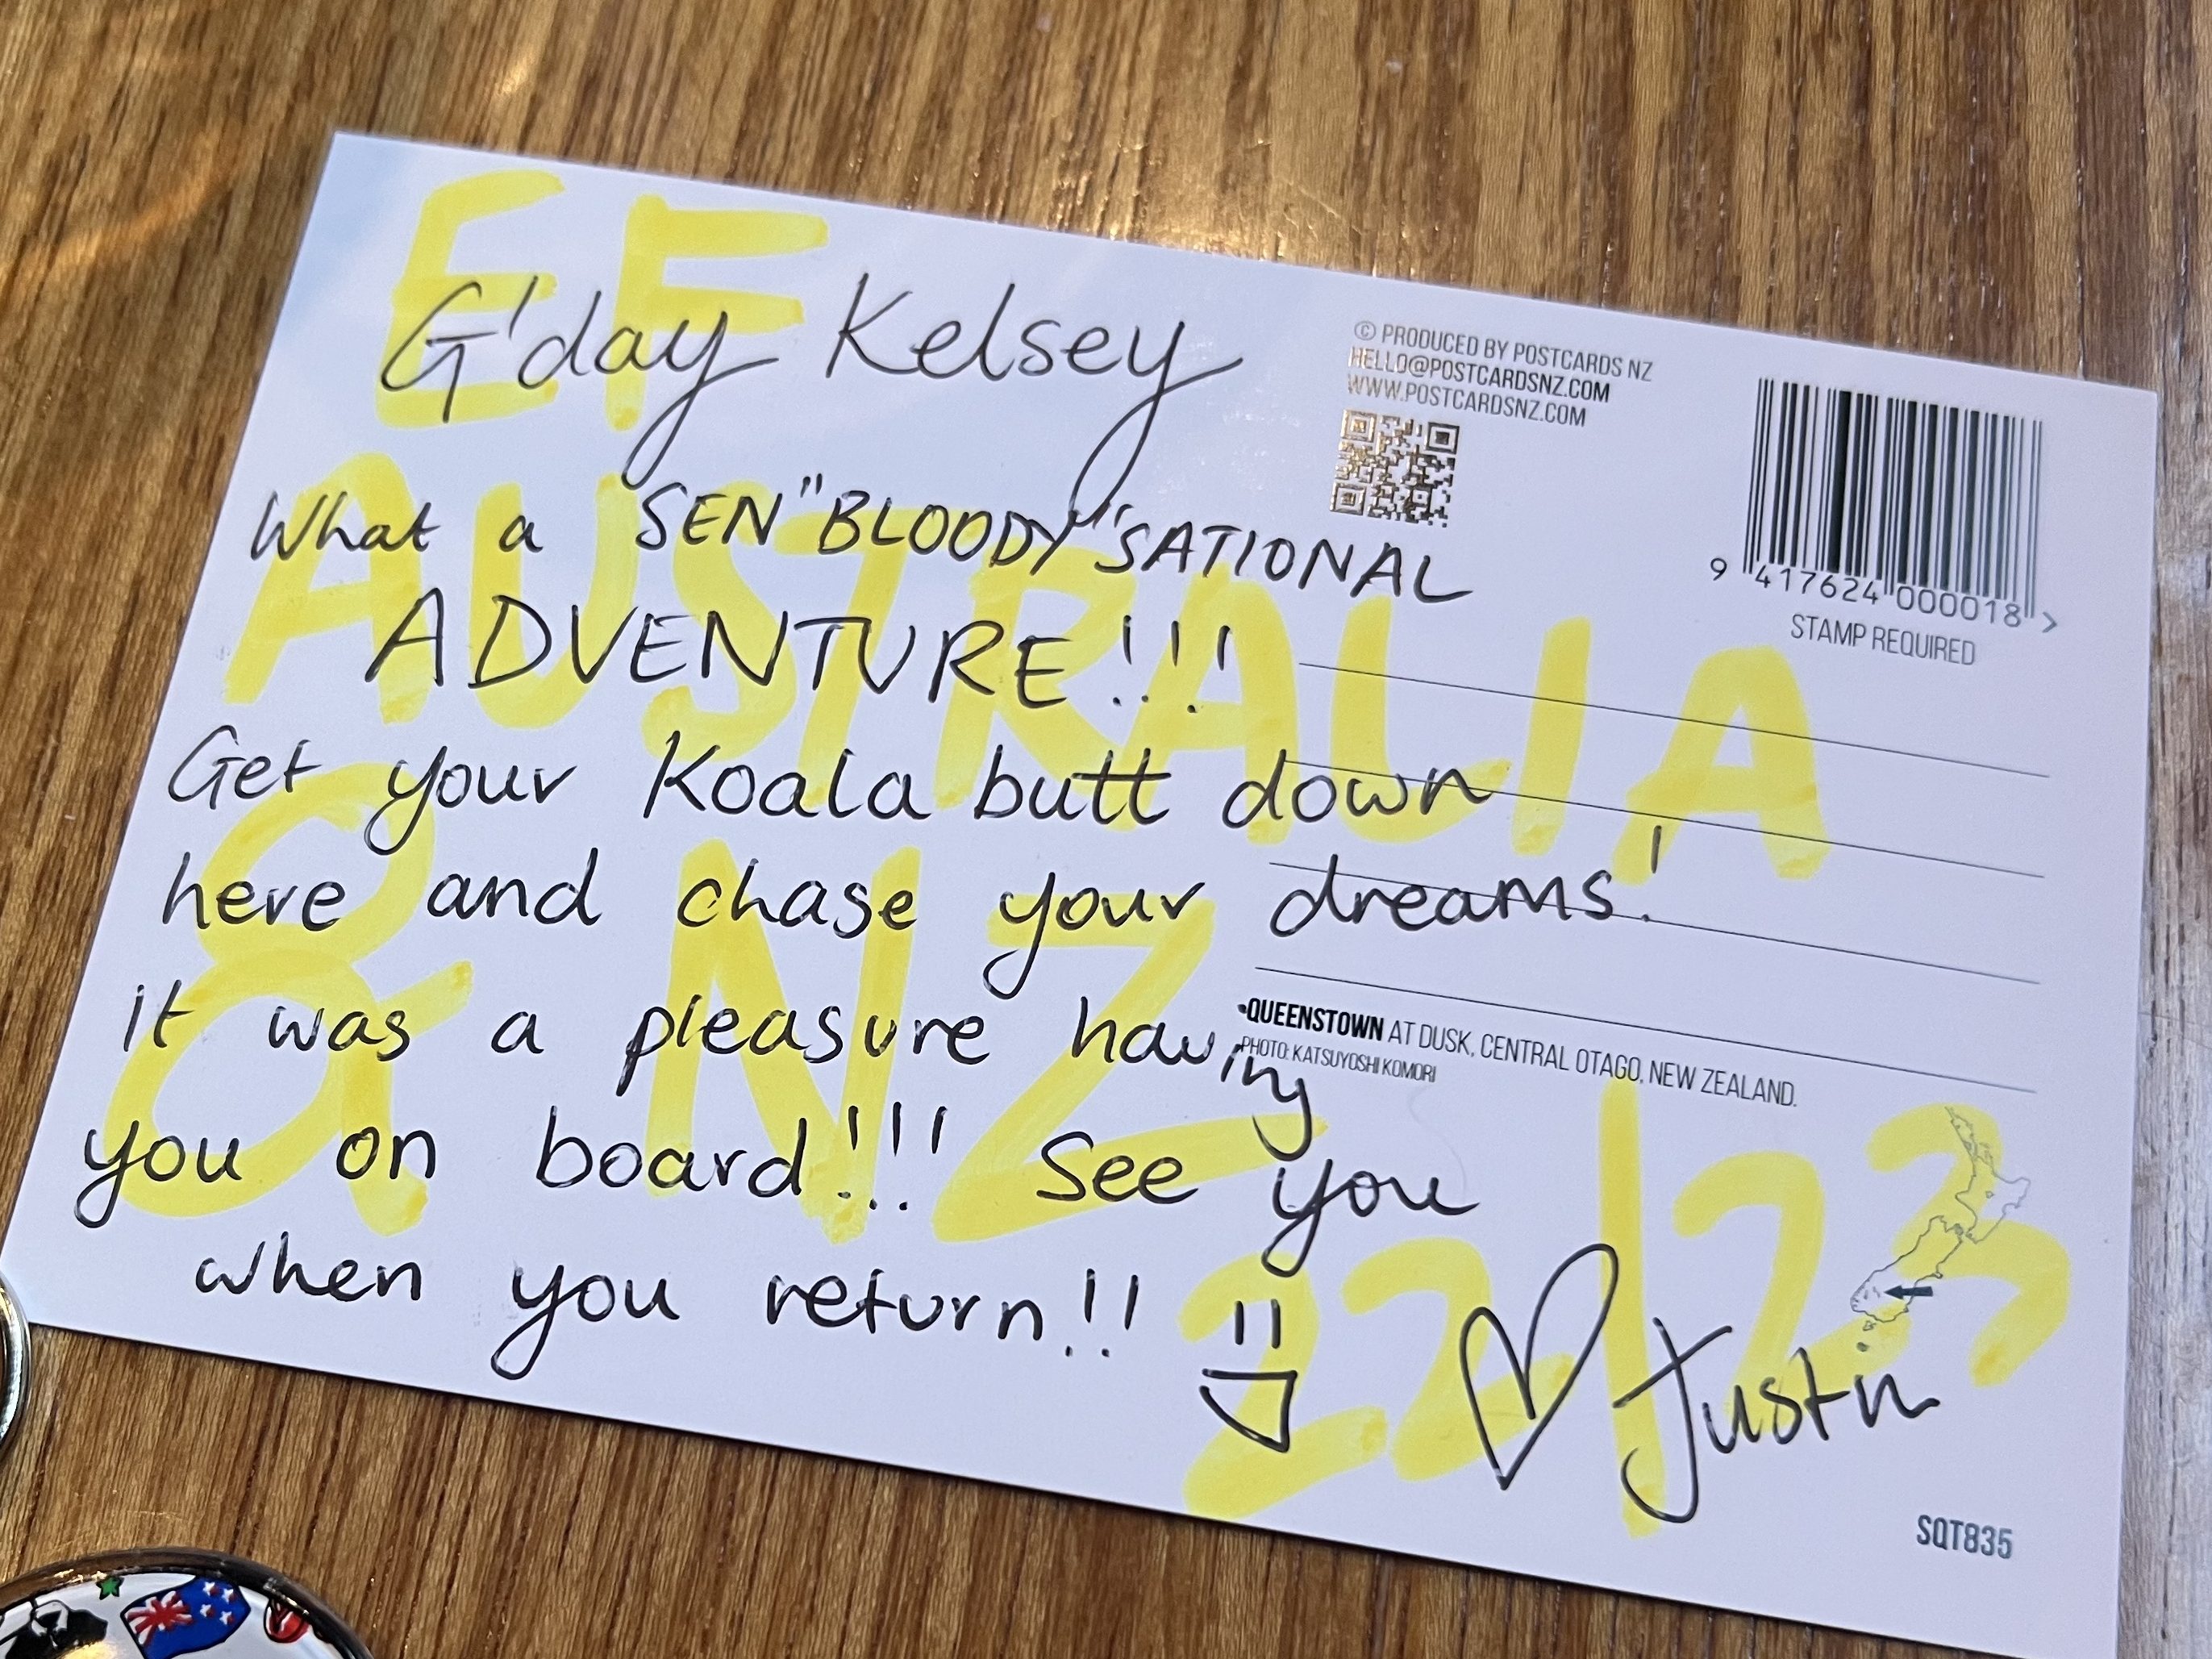 EF
AUSTRALIA
& NZ
22/23
G'day Kelsey
What a SEN"BLOODY"SATIONAL
ADVENTURE!!!
Get your Koala butt down
here and chase your dreams!
it was a pleasure having
you on board!!! See you
when you return!! =D
♡ Justin
© PRODUCED BY POSTCARDS NZ
HELLO@POSTCARDSNZ.COM
WWW.POSTCARDSNZ.COM
9 417624 000018 >
STAMP REQUIRED
•QUEENSTOWN AT DUSK, CENTRAL OTAGO, NEW ZEALAND.
PHOTO: KATSUYOSHI KOMORI
SQT835